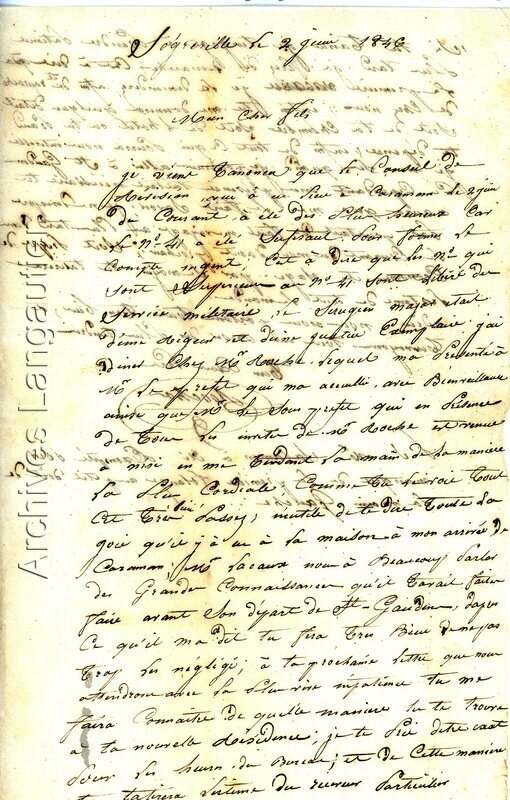 le 2 juin 1846
Mon Cher fils
je vient t'anonca que le Conseil de
Revision qui a u lieu a Caraman le 2 juin
du Courant a été des plus heureux Car
le N° 41 a été Sufisant pour former le
Compte ingent, C'et a dire que les N° qui
sont Superieur au N° 41 sont Libéré du
Service militaire, le Sirugien major etait
d'une Rigeur et d'une
diner Chez Mr Roche, lequel ma Presenté à
Mr Le prefet qui ma acceulli, avec Bienveillance
ainsi que Mr le Sous prefet qui en Présence
de Tous les invités de Mr Roche est venue
à moi en me Tendant la main de la manière
la plus Cordiale Comme tu le voit Tout
C'et Tres bien Passée, inutile de te dire Toute la
joie qu'il y à u à la maison à mon arrivée de
Caraman, Mr Lacaux nou à Beaucoup parlér
de Grande Connaissance qu'il t'avait
faire avant son départ de St Gaudens, dapres
Ce qu'il ma dit tu fera Tres Bien de ne pas
trop les negligé, à ta prochaine lettre que nous
attendrons avec la plus vive inpatience tu me
faira Connaitre de quelle maniere tu te trouve
a ta nouvelle Résidence, je te Prie detre exact
pour les heures du Bureau, et de Cette maniere
tu l'estime du receveur Particulier
Archives Langautier